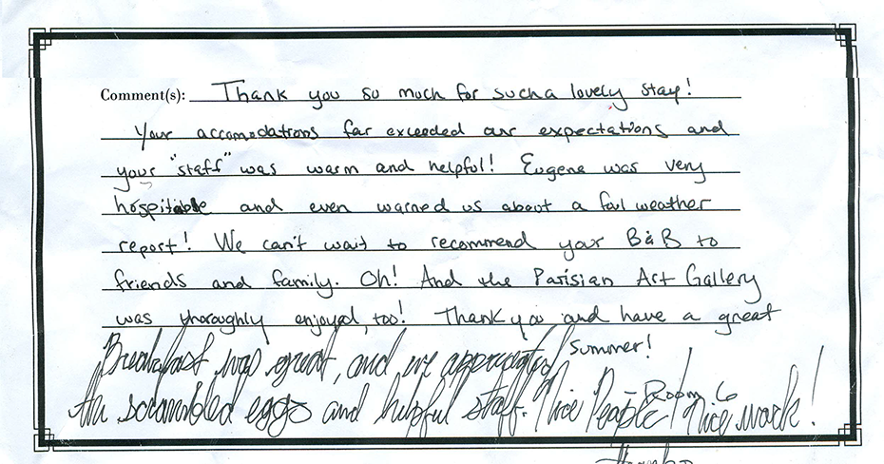 Comment(s): Thank you so much for such a lovely stay!
Your accomodations far exceeded our expectations and
your "staff" was warm and helpful! Eugene was very
hospitable and even warned us about a foul weather
report! We can't wait to recommend your B&B to
friends and family. Oh! And the Parisian Art Gallery
was thoroughly enjoyed, too! Thank you and have a great
summer!
- Room 6
Breakfast was great, and we appreciated
the scrambled eggs and helpful staff. Nice People! Nice work!